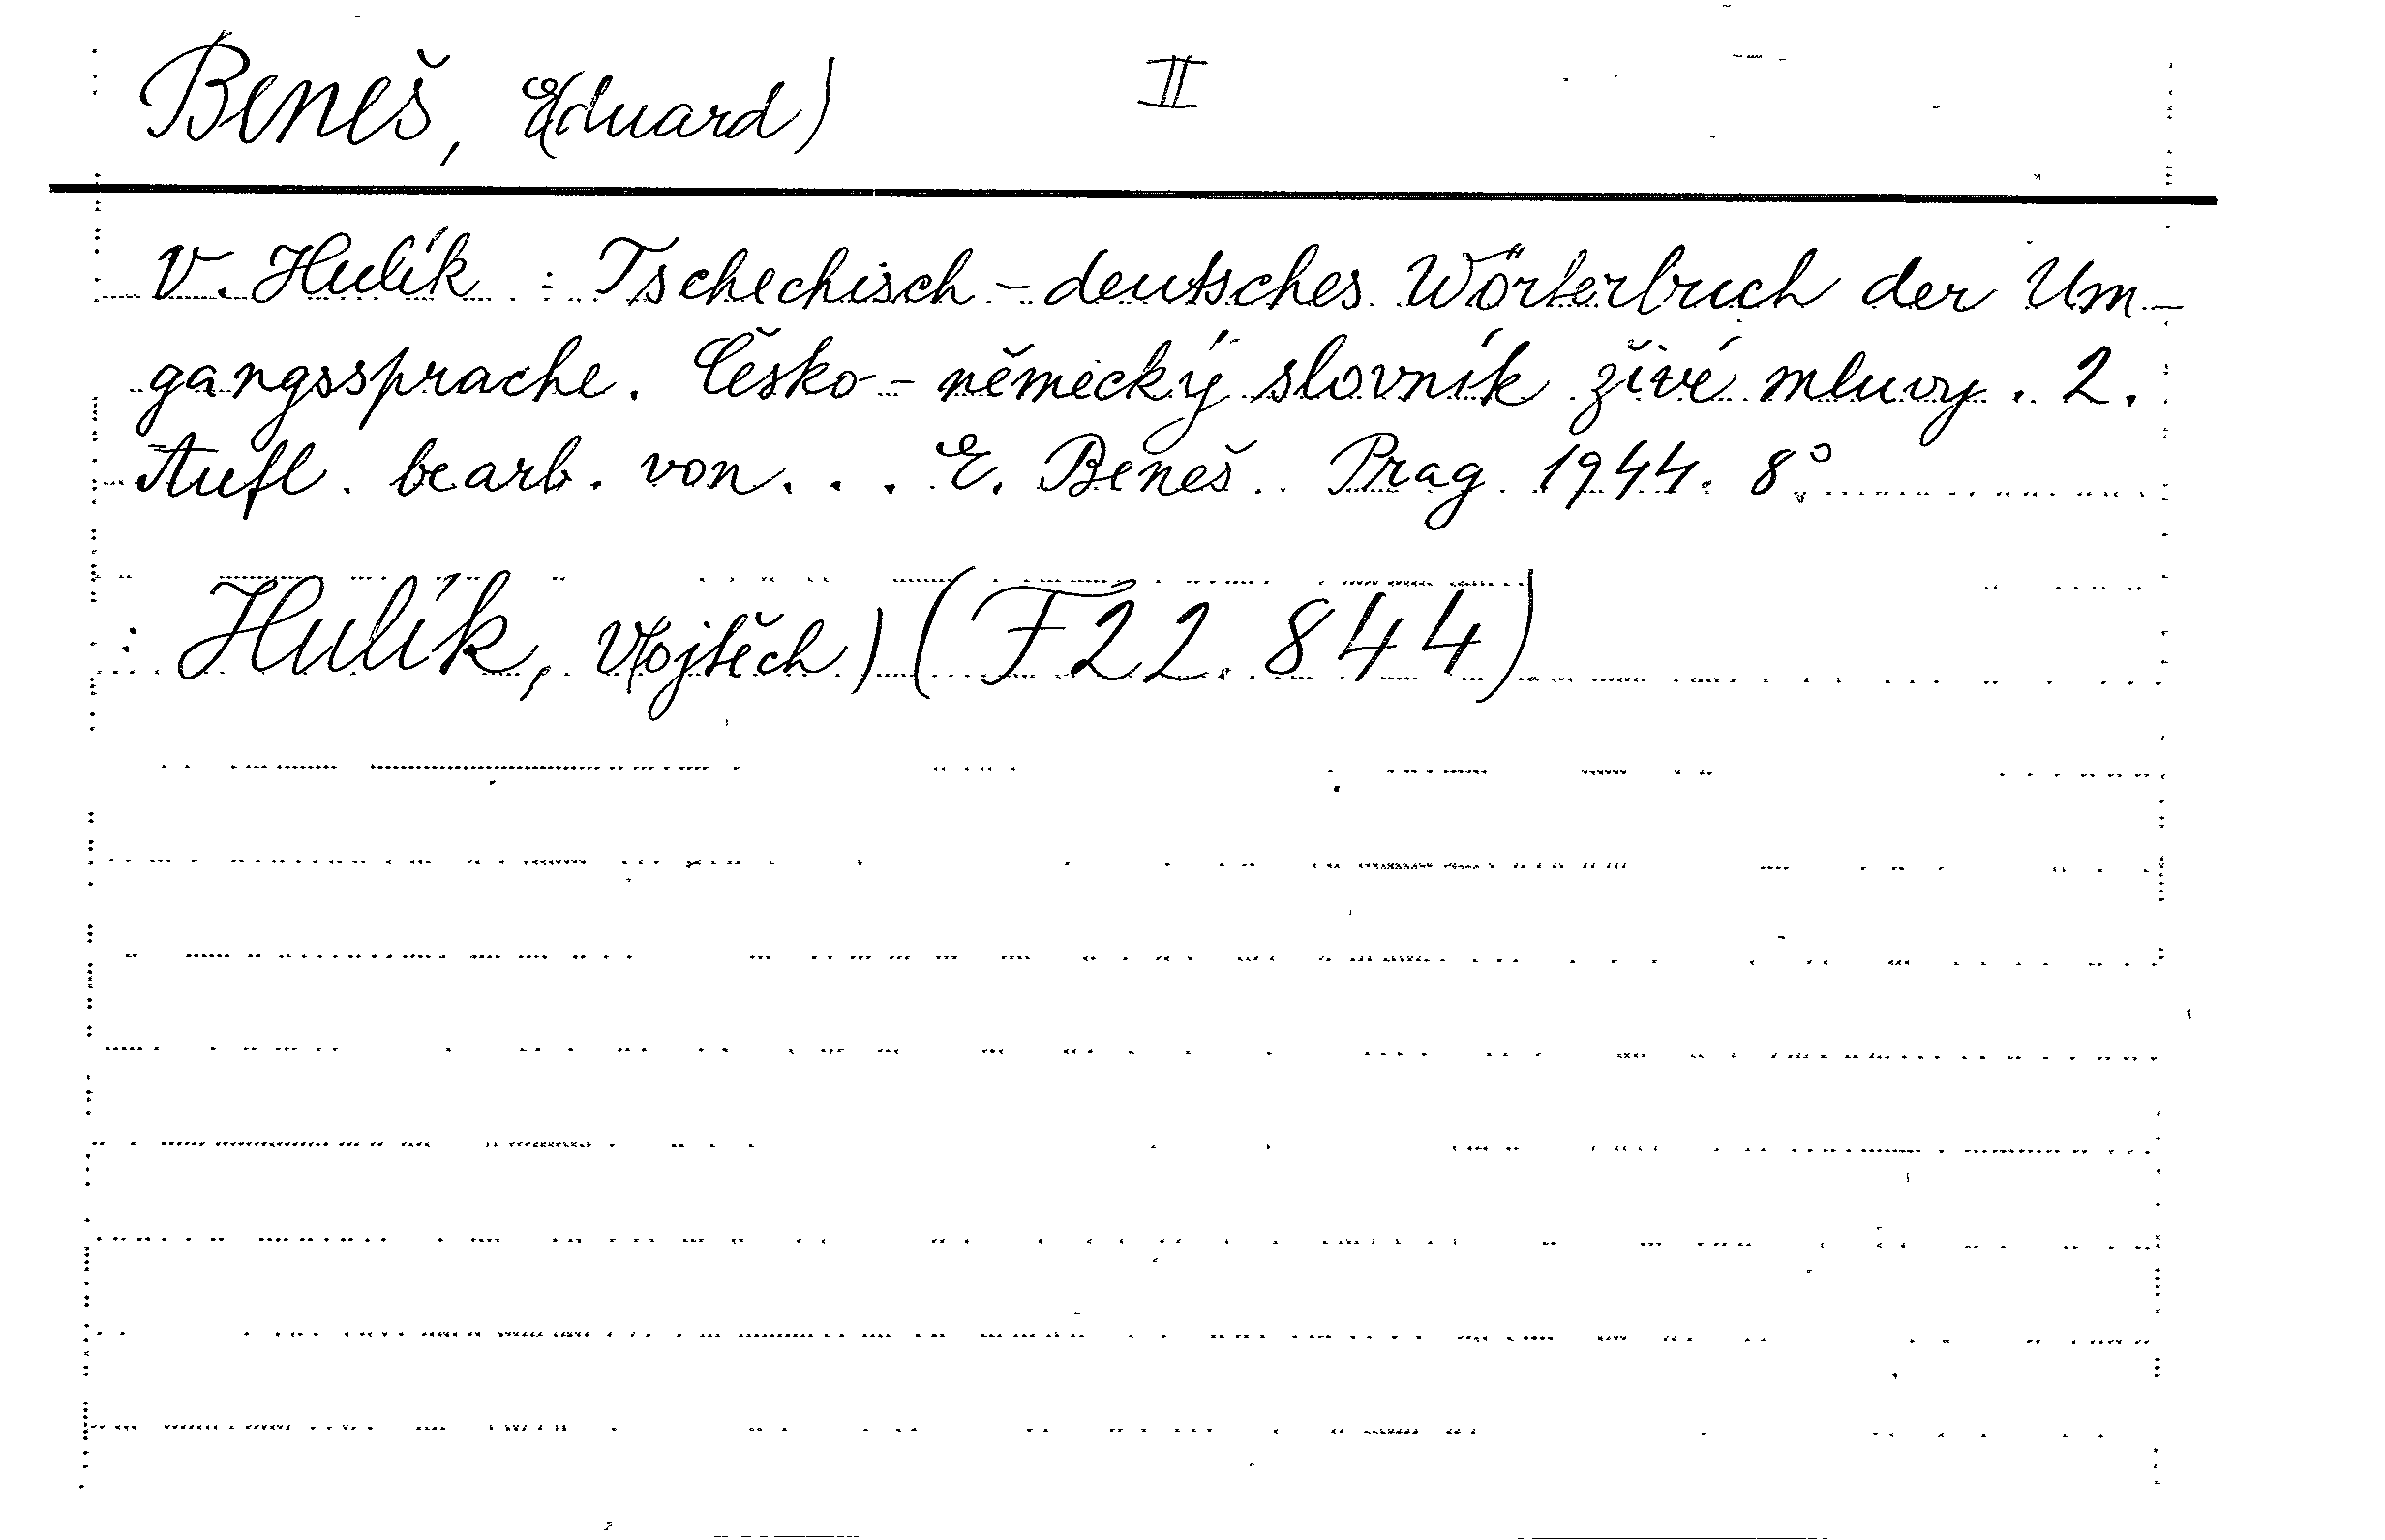 Beneš, E(duard) II
V. Hulík : Tschechisch-deutsches Wörterbuch der Um-
gangssprache. Česko-německý slovník živé mluvy. 2.
Aufl. bearb. von... E. Beneš. Prag 1944. 8°
: Hulík, V(ojtěch) (F22.844)